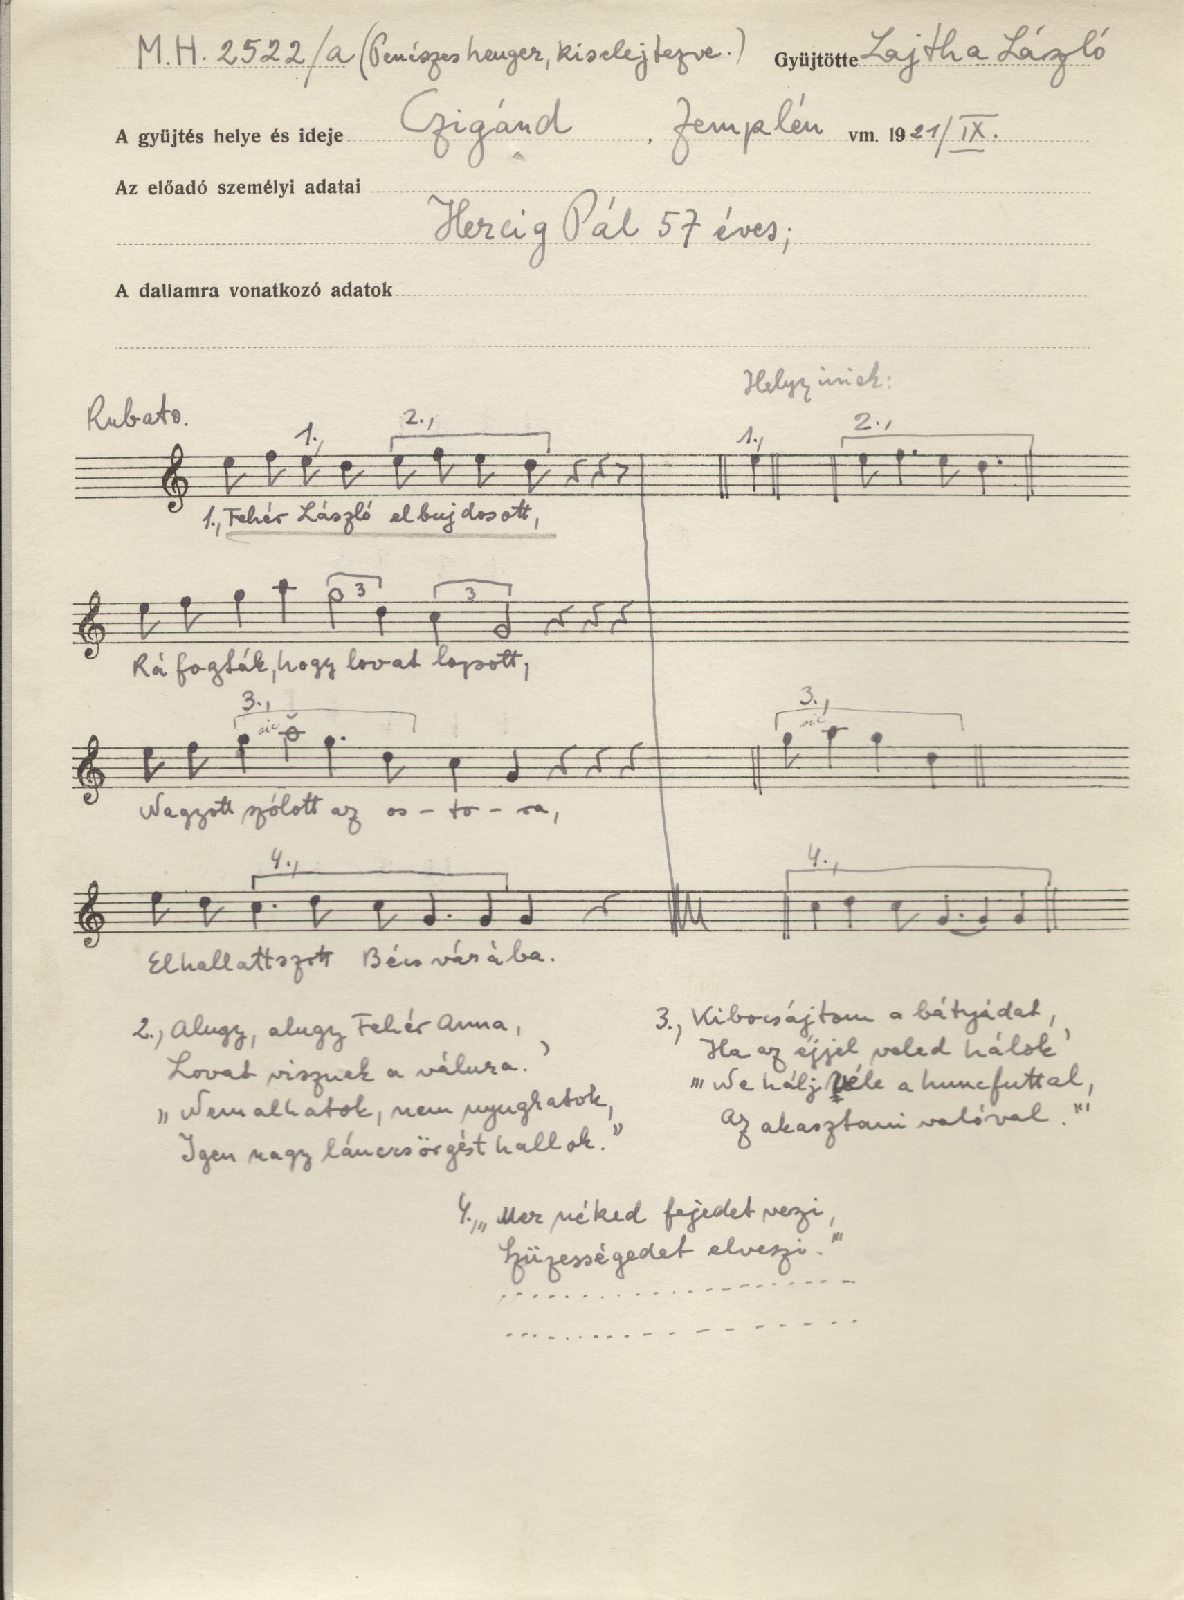 M.H. 2522/a (Penészes henger, kiselejtezve.) Gyüjtötte Lajtha László
A gyüjtés helye és ideje Czigánd, Zemplén vm. 1921/IX.
Az előadó személyi adatai
Hercig Pál 57 éves;
A dallamra vonatkozó adatok
Helyszíniek:
Rubato.
1., 2., 1., 2.,
1., Fehér László elbujdosott,
3 3
Rá fogták, hogy lovat lopott,
3., sic 3., sic
Nagyott szólott az os-to-ra,
4., 4.,
Elhallattszott Bécs várába.
2., Alugy, alugy Fehér Anna,
Lovat visznek a válura.'
„Nem alhatok, nem nyughatok,
Igen nagy láncsörgést hallok."
3., Kibocsájtom a bátyádat,
Ha az éjjel veled hálok'
"'Ne hálj véle a huncfuttal,
Az akasztani valóval."'
4., "'Mer néked fejedet veszi,
Szüzességedet elveszi."'